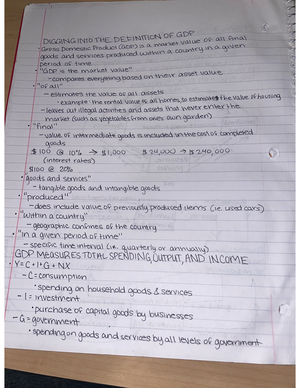 DIGGING INTO THE DEFINITION OF GDP
- Gross Domestic Product (GDP) is a market value of all final
goods and services produced within a country in a given
period of time
• "GDP is the market value"
- compares everything based on their asset value
• "of all"
- estimates the value of all assets
• example: the rental value all homes to estimate the value of housing
- leaves out illegal activities and assets that never enter the
market (such as vegetables from ones own garden)
• "Final"
- value of intermediate goods is included in the cost of completed
goods
$100 @ 10% → $1,000 $24,000 → $240,000
(interest rates)
$100 @ 20%
• "goods and services"
- tangible goods and intangible goods
• "produced"
- does include value of previously produced items (i.e. used cars)
• "within a country"
- geographic confines of the country
• "In a given period of time"
- specific time interval (i.e. quarterly or annually)
GDP MEASURES TOTAL SPENDING, OUTPUT, AND INCOME
• Y = C + I + G + NX
- C = consumption
• spending on household goods & services
- I = investment
• purchase of capital goods by businesses
- G = government
• spending on goods and services by all levels of government